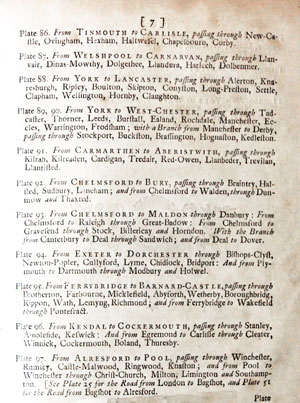 [ 7 ]
Plate 86. From TINMOUTH to CARLISLE, passing through New-Ca-
stle, Ovingham, Hexham, Haltwesel, Chapelbourn, Corby.
Plate 87. From WELSHPOOL to CARNARVAN, passing through Llan-
vair, Dinas-Mowthy, Dolgelher, Llandura, Harlech, Dolbenmer.
Plate 88. From YORK to LANCASTER, passing through Alerton, Kna-
resburgh, Ripley, Boulton, Skipton, Conyston, Long-Preston, Settle,
Clapham, Wellington, Hornby, Claughton.
Plate 89, 90. From YORK to WEST-CHESTER, passing through Tad-
caster, Thorner, Leeds, Burstall, Ealand, Rochdale, Manchester, Ec-
cles, Warrington, Frodsham; with a Branch from Manchester to Derby,
passing through Stockport, Buckston, Brassington, Hognaston, Kedleston.
Plate 91. From CARMARTHEN to ABERISTWITH, passing through
Kilrah, Kilreaden, Cardigan, Tredair, Red-Owen, Llanbeder, Trevilan,
Llanristed.
Plate 92. From CHELMSFORD to BURY, passing through Braintry, Hal-
sted, Sudbury, Lineham; and from Chelmsford to Walden, through Dun-
mow and Thaxted.
Plate 93. From CHELMSFORD to MALDON through Danbury: From
Chelmsford to Raleigh through Great-Badow: From Chelmsford to
Gravesend through Stock, Billericay and Horndon. With the Branch
from Canterbury to Deal through Sandwich; and from Deal to Dover.
Plate 94. From EXETER to DORCHESTER through Bishops-Clyst,
Newton-Popler, Cullyford, Lyme, Chidiock, Bridport: And from Ply-
mouth to Dartmouth through Modbury and Holwel.
Plate 95. From FERRYBRIDGE to BARNARD-CASTLE, passing through
Brotherton, Farburne, Micklefield, Abyforth, Wetherby, Boroughbridg,
Rippon, Wath, Leming, Richmond; and from Ferrybridge to Wakefield
through Pontefract.
Plate 96. From KENDAL to COCKERMOUTH, passing through Stanley,
Ambleside, Keswick: And from Egremond to Carlisle through Cleater,
Winnick, Cockermouth, Boland, Thuresby.
Plate 97. From ALRESFORD to POOL, passing through Winchester,
Rumsey, Castle-Malwood, Ringwood, Knaston; and from Pool to
Winchester through Christ-Church, Milton, Limington and Southamp-
ton. [See Plate 25 for the Road from London to Bagshot, and Plate 51
for the Road from Bagshot to Alresford.
Plate